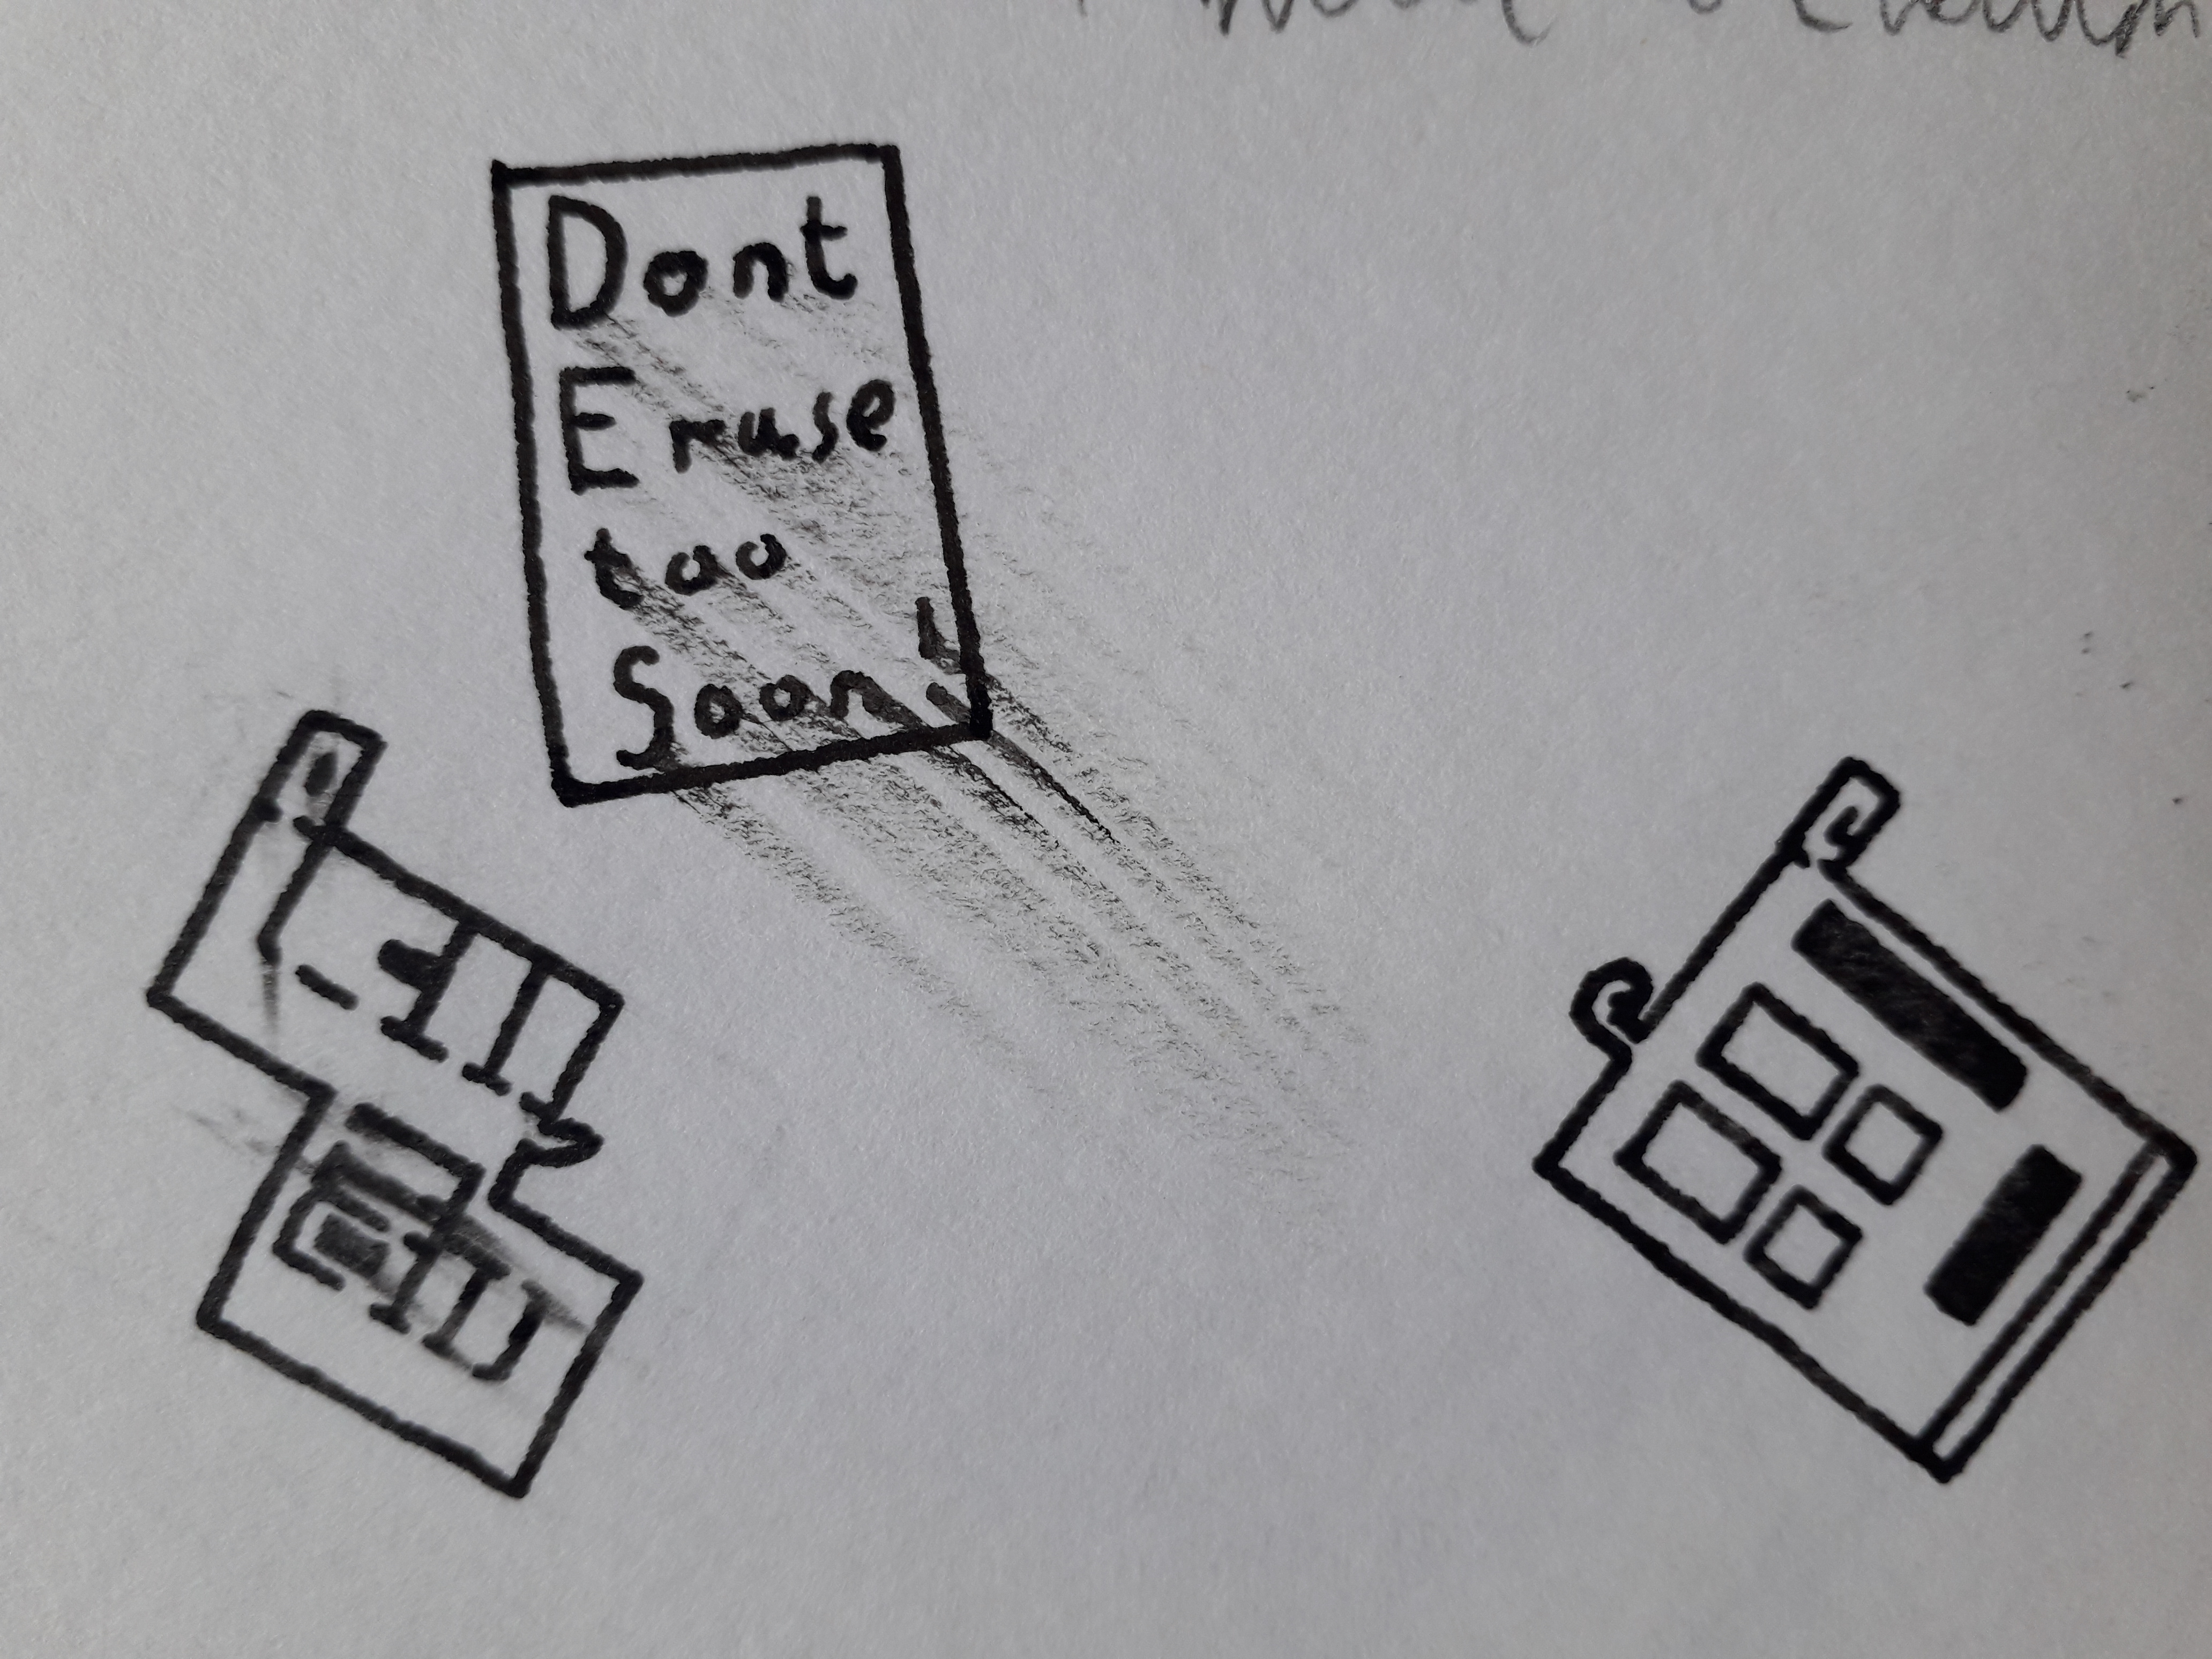 Dont
Erase
too
Soon!